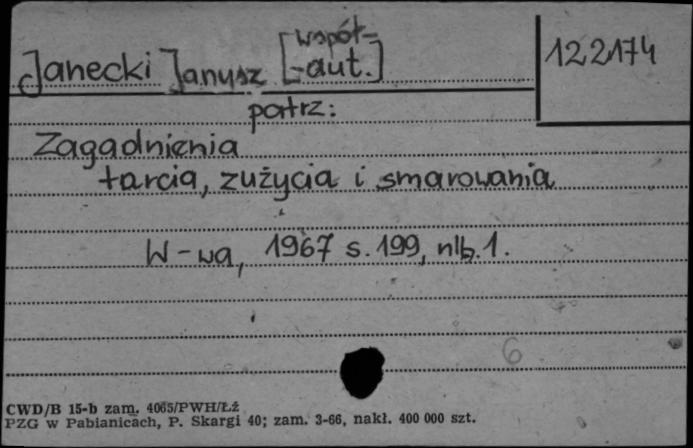 Janecki Janusz [współ-
-aut.]
122174
patrz:
Zagadnienia
tarcia, zużycia i smarowania
W-wa, 1967 s. 199, nlb. 1.
6
CWD/B 15-b zam. 4065/PWH/Łź
PZG w Pabianicach, P. Skargi 40; zam. 3-66, nakł. 400 000 szt.